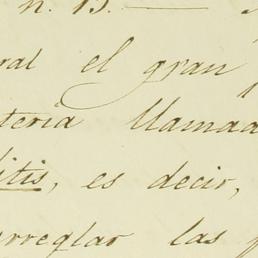 n. 13. —
ral el gran
teria llamada
litis, es decir,
arreglar las